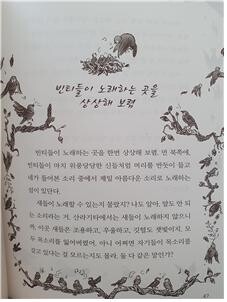 빈티들이 노래하는 곳을
상상해 보렴
빈티들이 노래하는 곳을 한번 상상해 보렴. 먼 북쪽에,
빈티들이 마치 위풍당당한 신들처럼 머리를 반듯이 들고
네가 들어본 소리 중에서 제일 아름다운 소리로 노래하는
섬이 있단다.
새들이 노래할 수 있는지 몰랐지? 나도 알아. 말도 안 되
는 소리라는 거. 산라기타에서는 새들이 노래하지 않으니
까. 이곳 새들은 조용하고, 우울하고, 깃털도 잿빛이지. 모
두 목소리를 잃어버렸어. 아니 어쩌면 자기들이 목소리를
갖고 있다는 걸 모르는지도 몰라. 둘 다 같은 말인가?